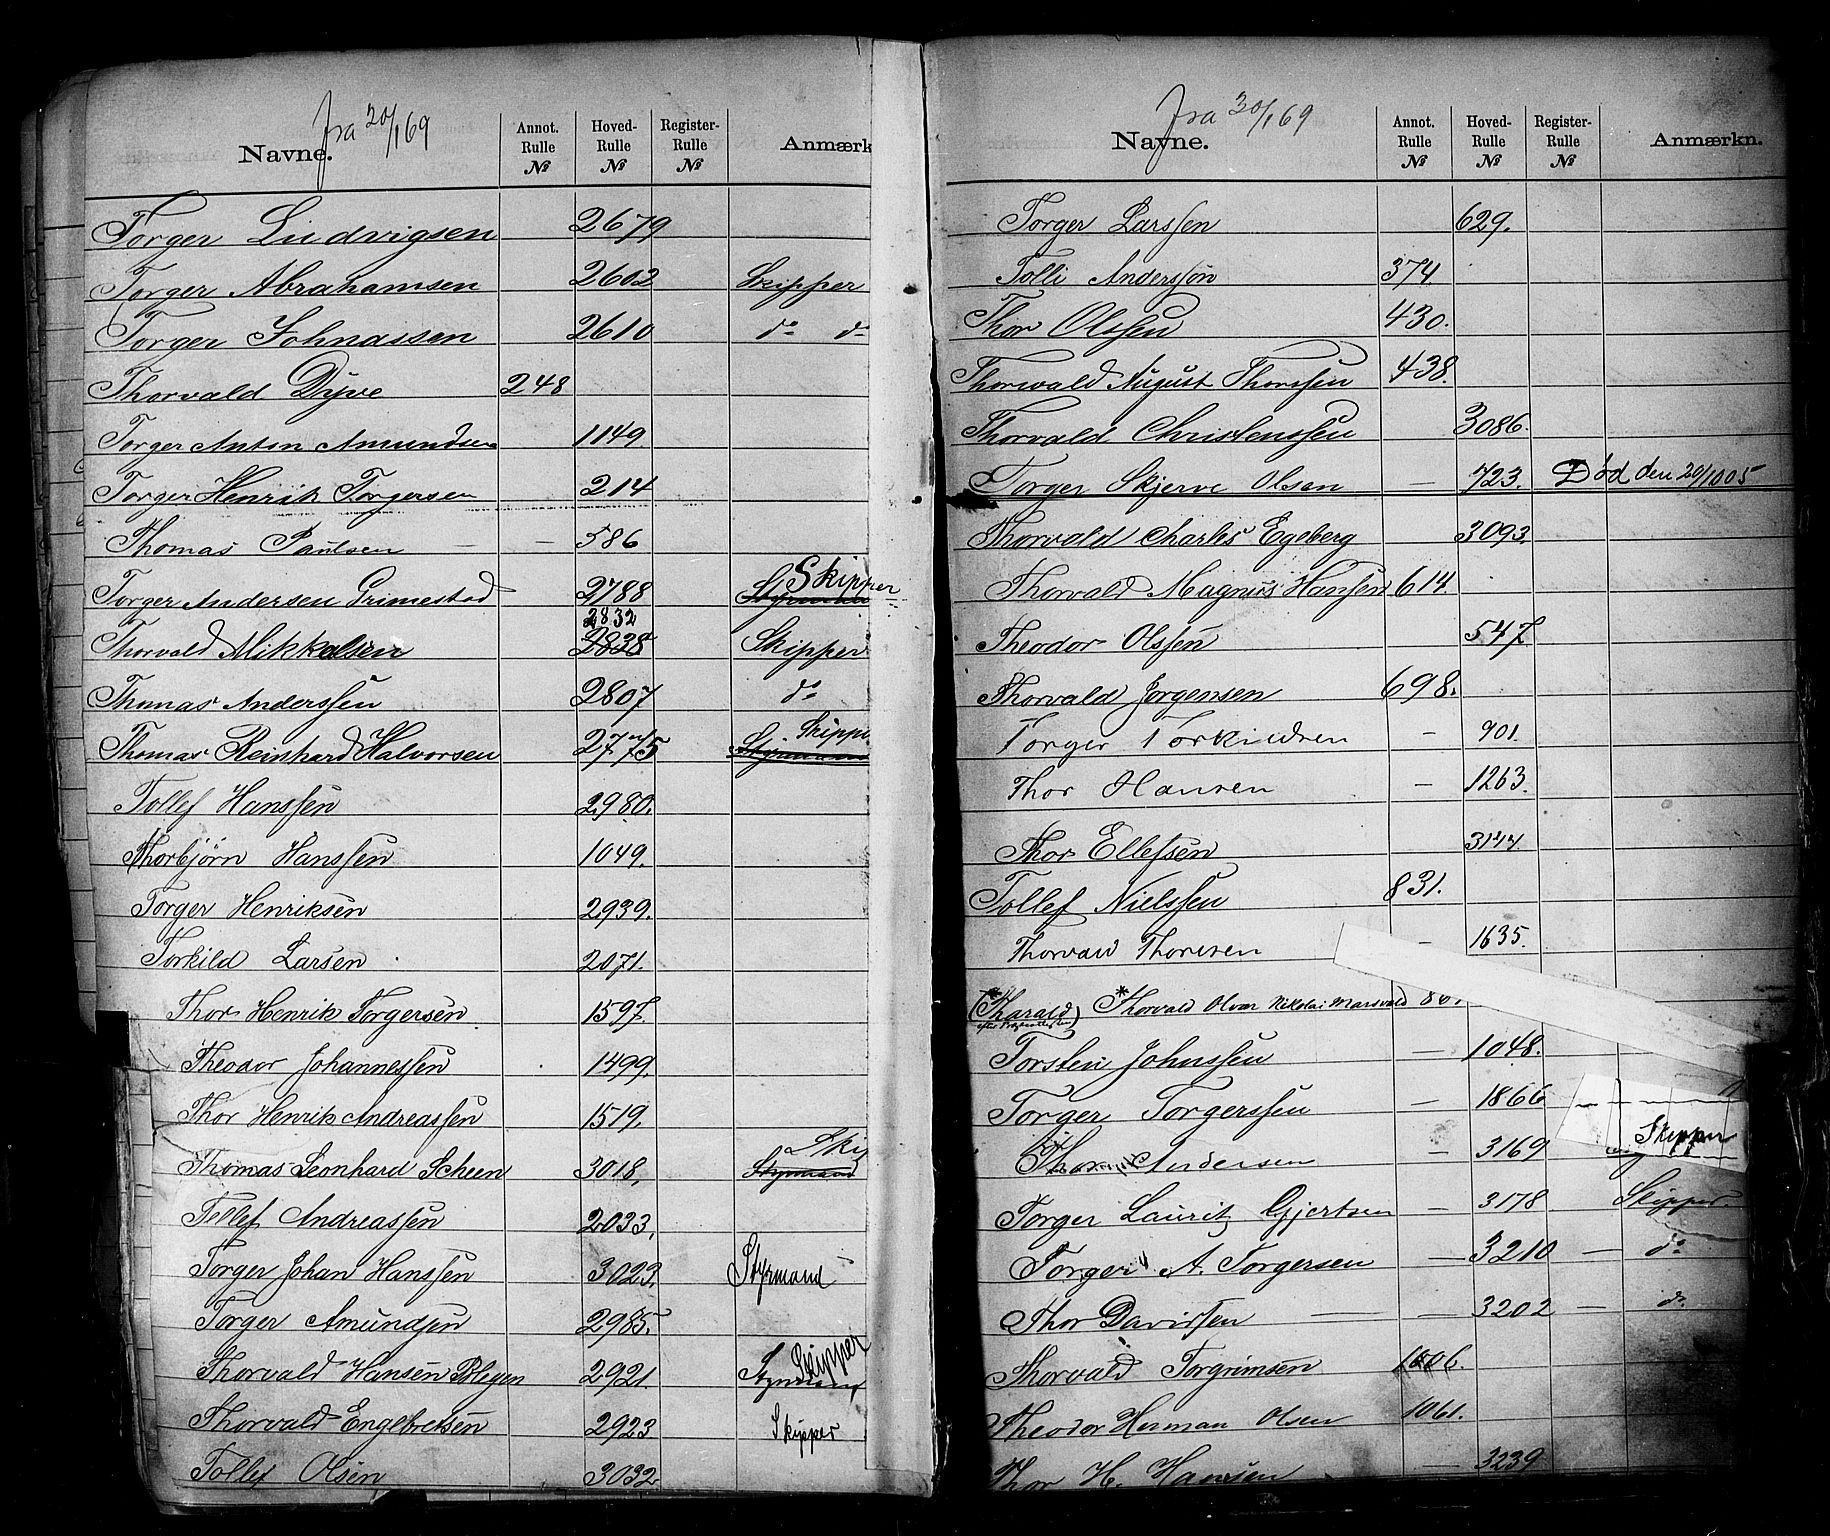 fra 20/1 69
Navne. Annot. Rulle № Hoved- Rulle № Register- Rulle № Anmærk
Torger Ludvigsen 2679
Torger Abrahamsen 2602 Skipper
Torger Johnassen 2610 do do
Thorvald Dyve 248
Torger Anton Amundsen 1149
Torger Henrik Torgersen 214
Thomas Paulsen — — 586
Torger Andersen Grimestad 2788 Styrmand Skipper
Thorvald Mikkelsen 2838 2832 Skipper
Thomas Anderssen 2807 do
Thomas Reinhard Halvorsen 2775 Styrmand Skippe
Tollef Hanssen 2980.
Thorbjørn Hanssen 1049.
Torger Henriksen 2939.
Torkild Larsen 2071.
Thor Henrik Torgersen 1597.
Theodor Johannessen 1499.
Thor Henrik Andreassen 1519.
Thomas Leonhard Scheen 3018. Styrmand Ski
Tellef Andreassen 2033.
Torger Johan Hanssen 3023. Styrmand
Torger Amundsen 2985.
Thorvald Hansen Bolegen 2921. Styrmand Skipper
Thorvald Engebretsen 2923 Skipper
Tollef Olsen 3032
fra 30/1 69
Navne. Annot. Rulle № Hoved- Rulle № Register- Rulle № Anmærkn.
Torger Larssen 629.
Tolli Anderssøn 374.
Thor Olssen 430.
Thorwald August Thorssen 438.
Thorvald Christenssen 3086.
Torger Skjerve Olsen — 723. Død den 20/10 05
Thorvald Charles Egeberg 3093.
Thorvald Magnus Hansen 614.
Theodor Olssen 547.
Thorvald Jørgensen 698.
Torger Torkildsen — 901.
Thor Hansen — 1263.
Thor Ellefsen 3144.
Tollef Nielssen 831.
Thorvald Thoresen — 1635.
(*Tharald *Thorvald Olvar Nikolai Marsvald 86.
Torsten Johnssen — 1048.
Torger Torgerssen — 1866
Thor Andersen — 3169 Skipper
Torger Lauritz Gjertsen — 3178 Skipper.
Torger A. Torgersen — 3210 — do
Thor Davidsen — — 3202 — do
Thorvald Torgrimsen 1006.
Theodor Herman Olsen 1061.
Thor H. Hansen — 3239